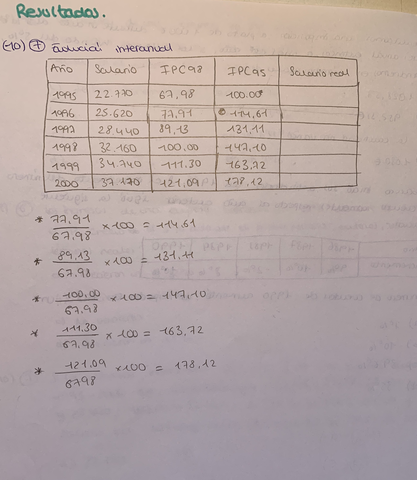 Resultados.
(-10) (7) interanual
Año Salario IPC98 IPC95 Salario real
1995 22.770 67,98 100.00
1996 25.620 77,91 114,61
1997 28.440 89,13 131,11
1998 32.160 100,00 147,10
1999 34.740 111.30 163,72
2000 37.170 121,09 178,12
* 77,91/67.98 × 100 = 114,61
* 89.13/67.98 × 100 = 131,11
* 100,00/67,98 × 100 = 147,10
* 111.30/67.98 × 100 = 163,72
* 121,09/6798 × 100 = 178,12